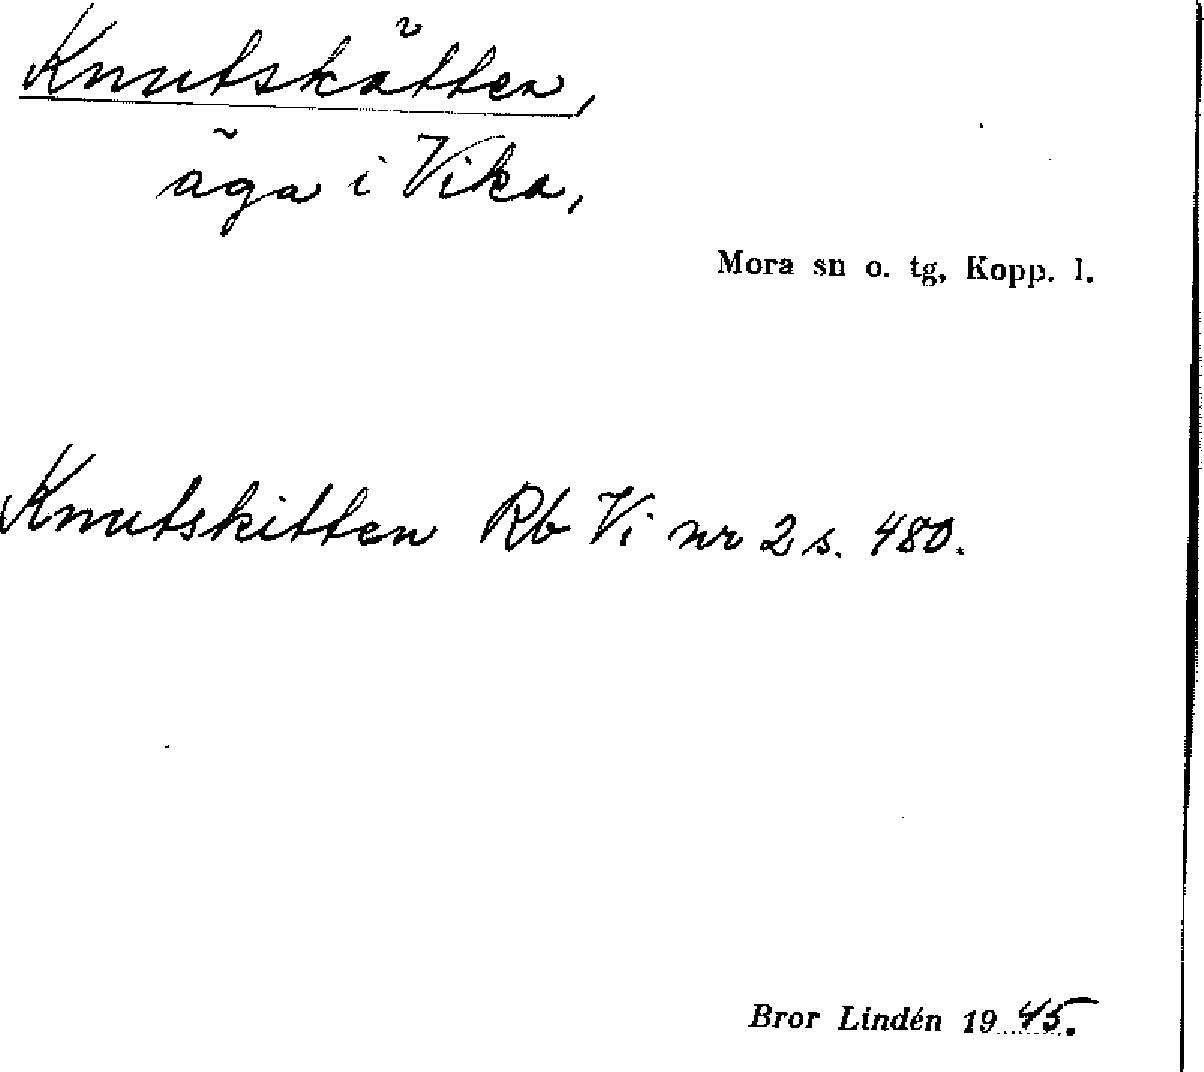 Knutskätten,
äga i Vika,
Mora sn o. tg, Kopp. l.
Knutskitten Rb Vi nr 2 s. 480.
Bror Lindén 1945.